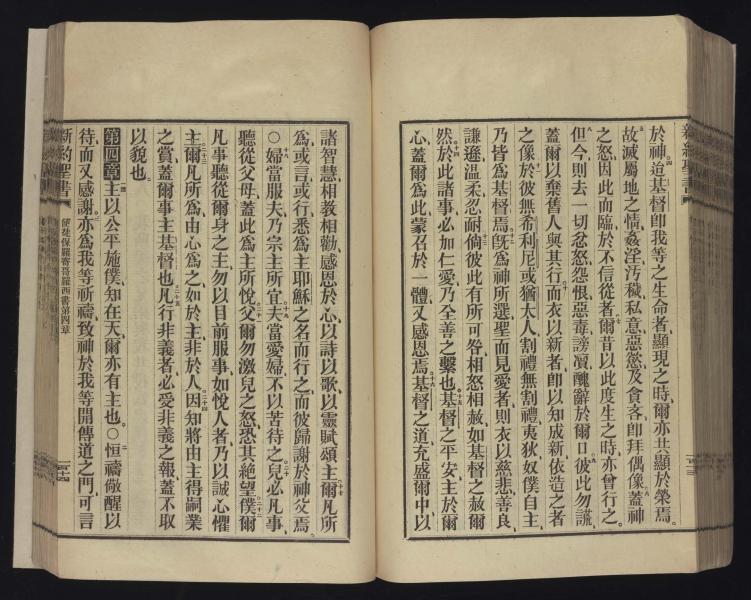 於神迨基督即我等之生命者顯現之時爾亦共顯於榮焉
故滅屬地之情姦淫汚穢私意惡慾及貪吝即拜偶像蓋神
之怒因此而臨於不信從者爾昔以此度生之時亦曾行之
但今則去一切忿怒怨恨惡毒謗讟醜辭於爾口彼此勿謊
蓋爾以棄舊人與其行而衣以新者即以知成新依造之者
之像於彼無希利尼或猶太人割禮無割禮夷狄奴僕自主
乃皆爲基督焉旣爲神所選聖而見愛者則衣以慈悲善良
謙遜温柔忍耐倘彼此有所可咎相恕相赦如基督之赦爾
然於此諸事必加仁愛乃全善之繫也基督之平安主於爾
心蓋爾爲此蒙召於一體又感恩焉基督之道充盛爾中以
諸智慧相教相勸感恩於心以詩以歌以靈賦頌主爾凡所
爲或言或行悉爲主耶穌之名而行之而彼歸謝於神父焉
○婦當服夫乃宗主所宜夫當愛婦不以苦待之兒必凡事
聽從父母蓋此爲主所悅父爾勿激兒之怒恐其絶望僕爾
凡事聽從爾身之主勿以目前服事如悅人者乃以誠心懼
主爾凡所爲由心爲之如於主非於人因知將由主得嗣業
之賞蓋爾事主基督也凡行非義者必受非義之報蓋不取
以貌也
第四章主以公平施僕知在天爾亦有主也○恒禱儆醒以
待而又感謝亦爲我等祈禱致神於我等開傳道之門可言
新約聖書 使徒保羅寄哥羅西書第四章